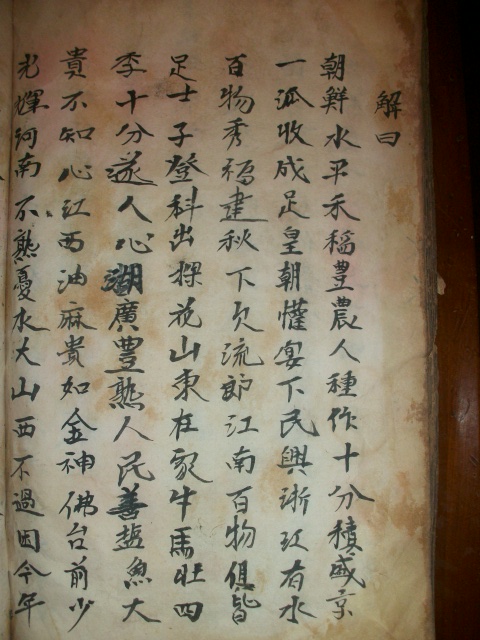 解曰
朝鮮水平禾稻豊農人種作十分積盛京
一派收成足皇朝懽宴下民興浙江有水
百物秀福建秋下欠流郎江南百物俱皆
足士子登科出探花山東在家牛馬壯四
季十分遂人心湖廣豊熟人民善塩魚大
貴不知心江西油麻貴如金神佛台前少
光輝河南不熟憂水大山西不過因今年